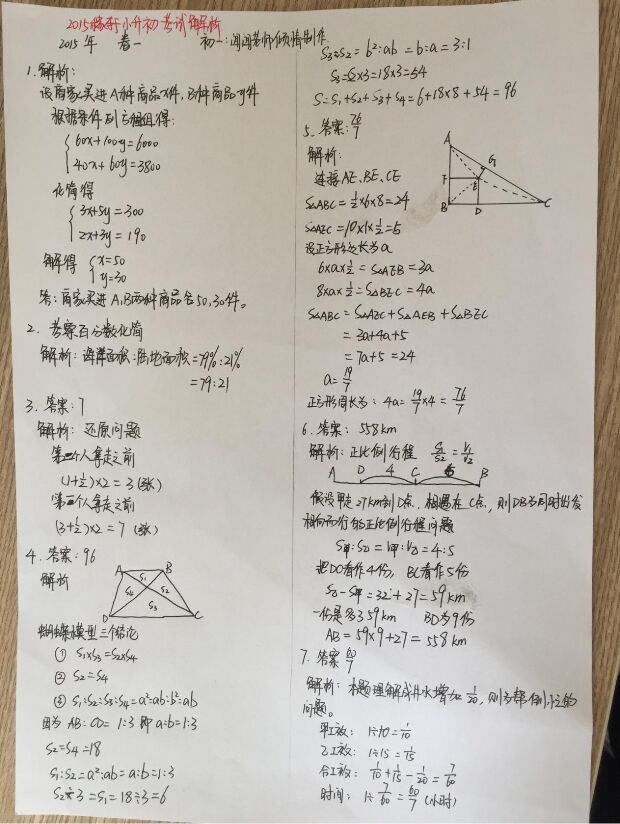 2015 小升初考试解析
2015年 春一 初一:闫闫老师倾情制作
1.解析:
设商家买进A种商品x件,B种商品y件
根据条件列方程组得:
60x+100y=6000
40x+60y=3800
化简得
3x+5y=300
2x+3y=190
解得 x=50
y=30
答:商家买进A,B两种商品各50,30件。
2. 考察百分数化简
解析:海洋面积:陆地面积=79%:21%
=79:21
3.答案:7
解析:还原问题
第二个人拿走之前
(1+½)×2=3(张)
第一个人拿走之前
(3+½)×2=7(张)
4.答案:96
解析
A B
S₁
S₄ S₂
S₃
D C
蝴蝶模型三个结论
① S₁×S₃=S₂×S₄
② S₂=S₄
③ S₁:S₂:S₃:S₄=a²:ab:b²:ab
因为 AB:CD=1:3 即 a:b=1:3
S₂=S₄=18
S₁:S₂=a²:ab=a:b=1:3
S₂÷3=S₁=18÷3=6
S₃:S₂=b²:ab=b:a=3:1
S₃=S₂×3=18×3=54
S=S₁+S₂+S₃+S₄=6+18×8+54=96
5.答案:76/7
解析:
连接AE、BE、CE
A
G
F E
B D C
S△ABC=½×6×8=24
S△AEC=10×1×½=5
设正方形边长为a
6×a×½=S△AEB=3a
8×a×½=S△BEC=4a
S△ABC=S△AEC+S△AEB+S△BEC
=3a+4a+5
=7a+5=24
a=19/7
正方形周长为:4a=19/7×4=76/7
6.答案:558km
解析:正比例行程 S₁/S₂=V₁/V₂
A D 4 C 5 B
假设甲走27km到D点,相遇在C点,则DB为同时出发
相向而行的正比例行程问题
S甲:S乙=V甲:V乙=4:5
把DC看作4份,BC看作5份
S乙-S甲=32+27=59km
一份是多3 59km BD为9份
AB=59×9+27=558km
7.答案60/7
解析:本题理解成井水增加1/20,则为帮倒忙的
问题。
甲工效:1÷10=1/10
乙工效:1÷15=1/15
合工效:1/10+1/15-1/20=7/60
时间:1÷7/60=60/7(小时)